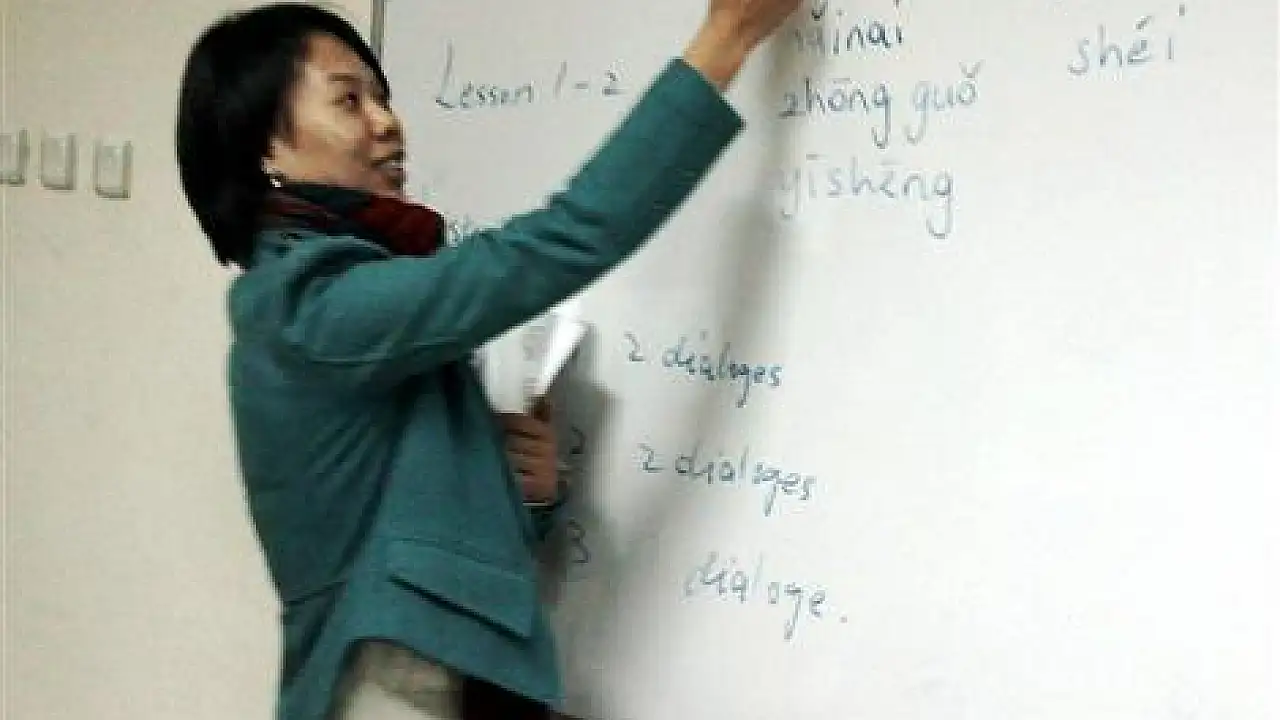 Lesson 1-2
nǎinai
shéi
zhōng guǒ
yīshēng
2 dialoges
2
2 dialoges
3
dialoge.